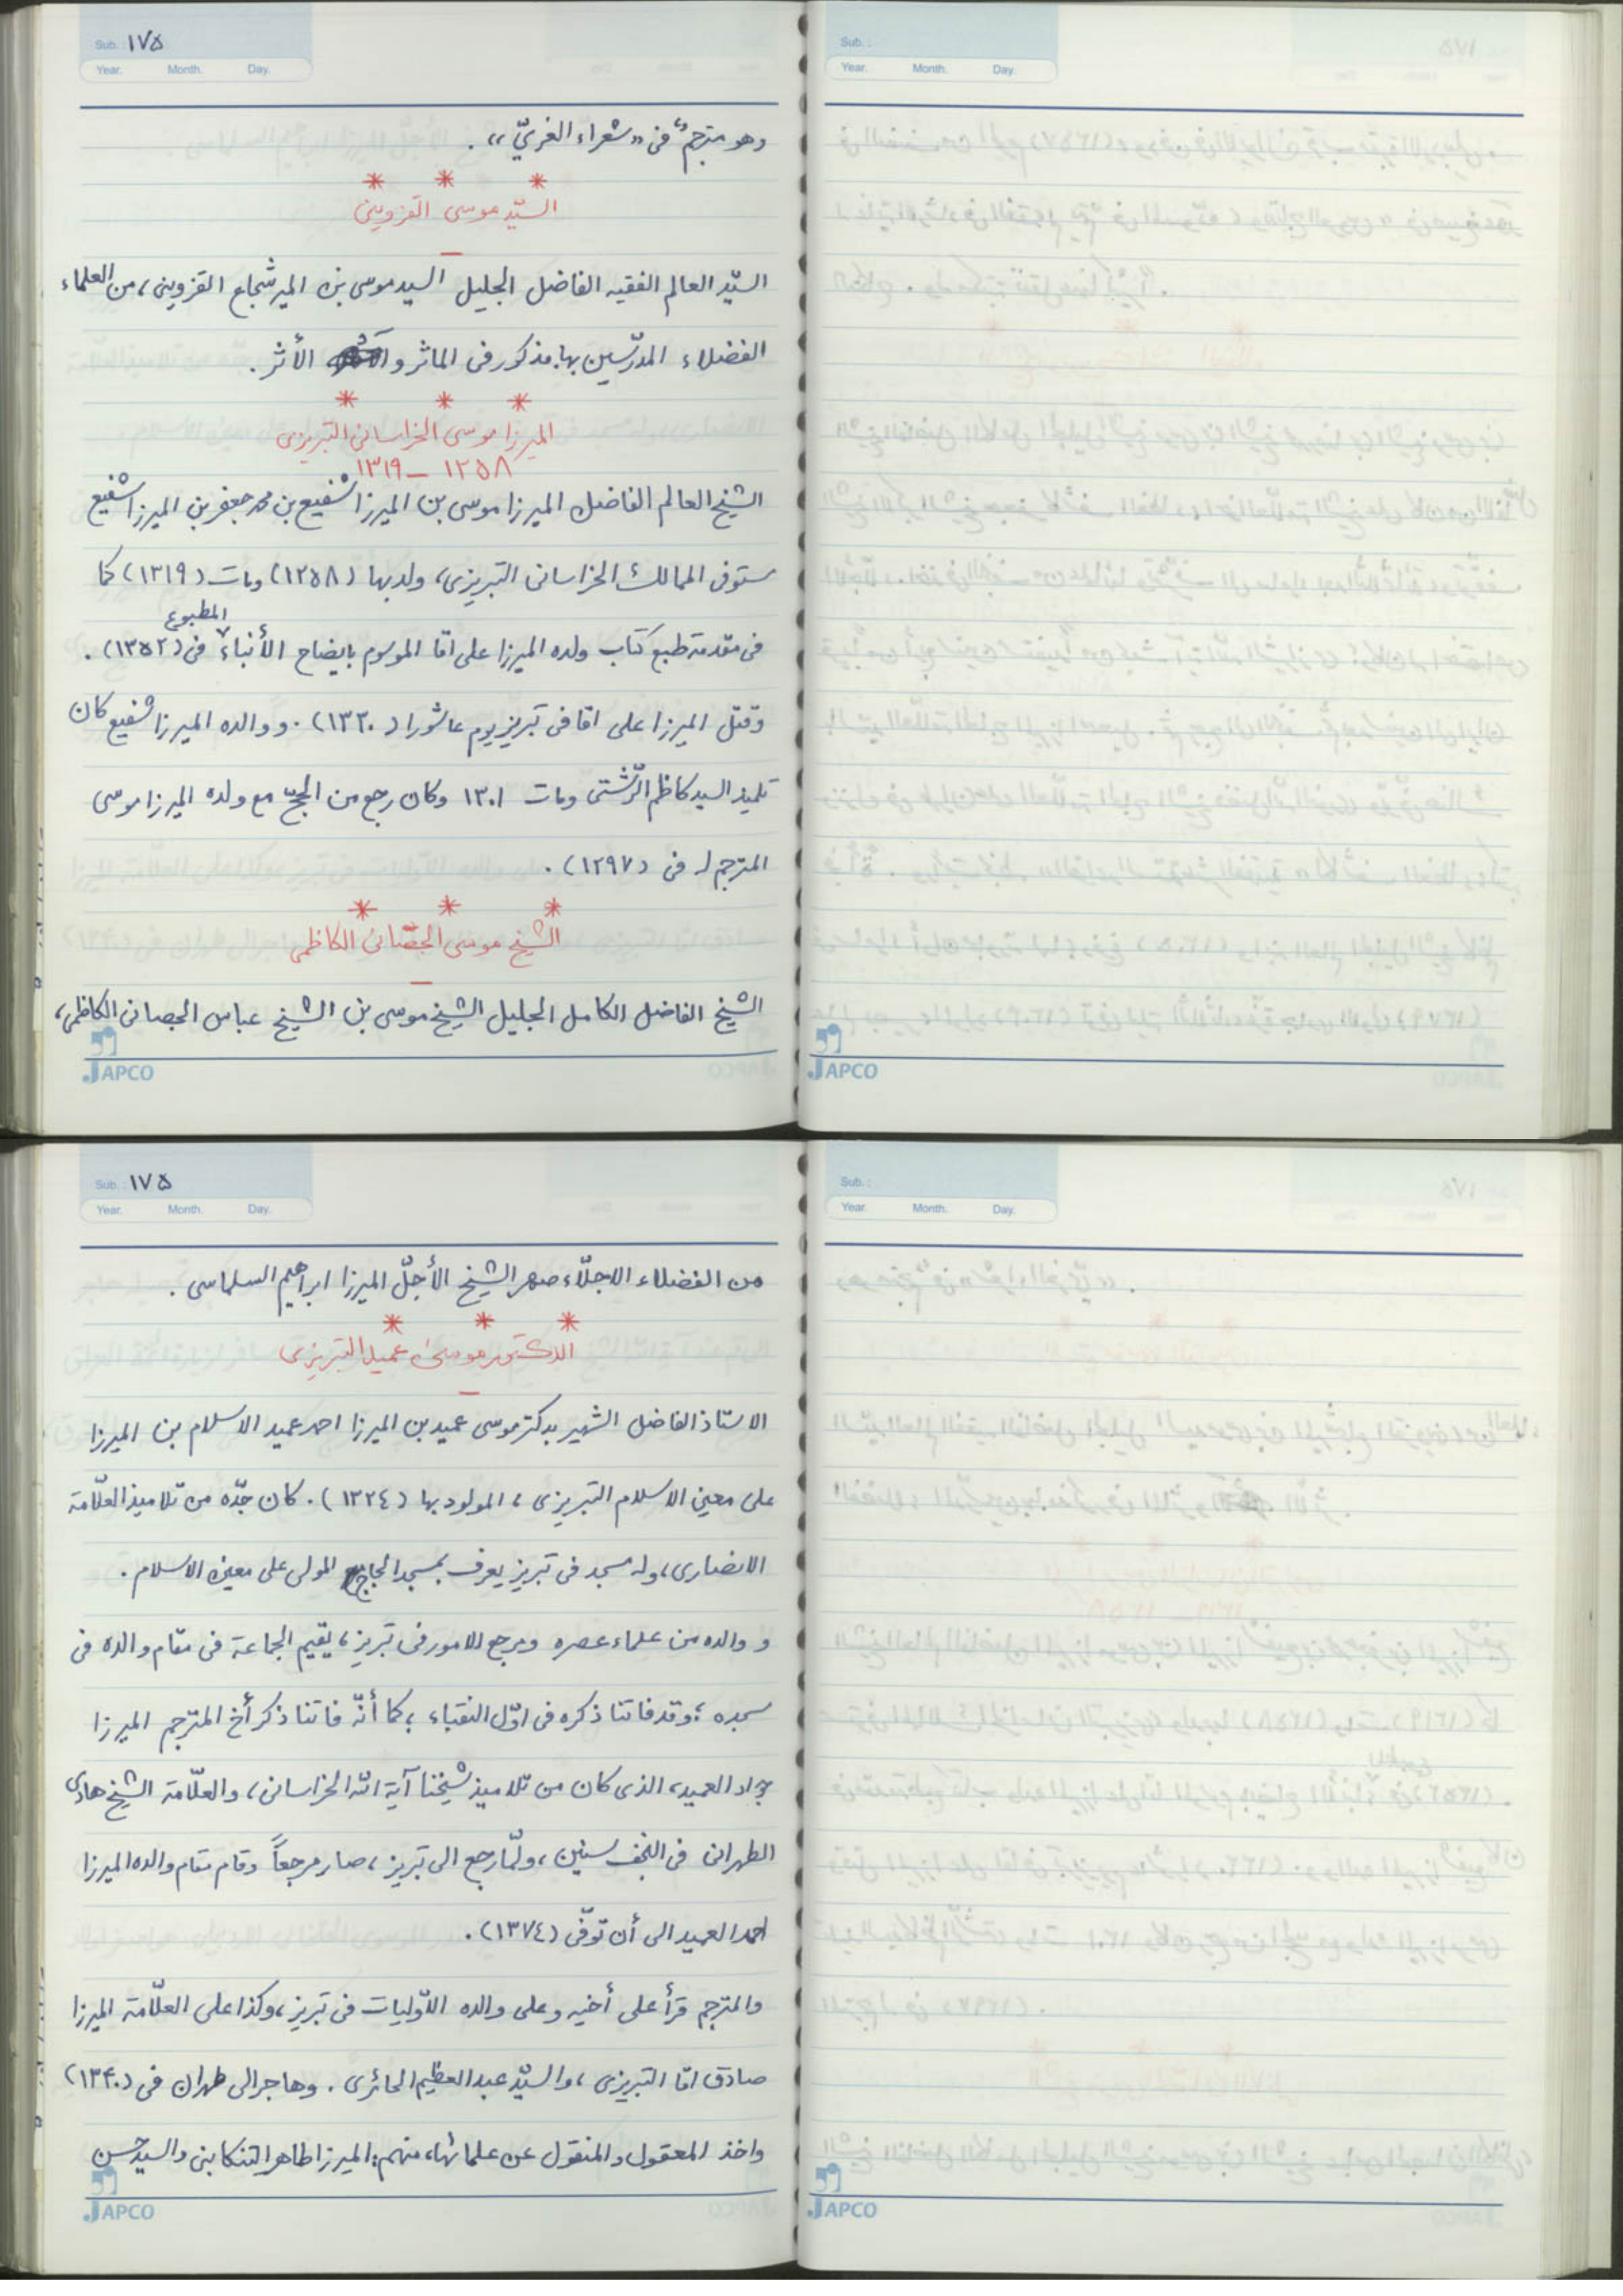 Sub. : ١٧۵
Year. Month. Day.
وهو مترجمٌ في «شعراء الغريّ».
* * *
السيّد موسى القزويني
السيّد العالم الفقيه الفاضل الجليل السيد موسى بن المير شجاع القزويني، من العلماء
الفضلاء المدرّسين بها. مذكور في الماثر و الأثر.
* * *
الميرزا موسى الخراساني التبريزي
١٢۵٨ – ١٣١٩
الشيخ العالم الفاضل الميرزا موسى بن الميرزا شفيع بن محمد جعفر بن الميرزا شفيع
ستوفى الممالك الخراساني التبريزي، ولد بها (١٢۵٨) ومات (١٣١٩) كما
في مقدمة طبع كتاب ولده الميرزا على اقا الموسوم بايضاح الأنباء المطبوع في (١٣۵٢).
وقتل الميرزا على اقا في تبريز يوم عاشورا (١٣٣٠). و والده الميرزا شفيع كان
تلميذ السيد كاظم الرّشتي ومات ١٣٠١ وكان رجع من الحجّ مع ولده الميرزا موسى
المترجم له في (١٢٩٧).
* * *
الشيخ موسى الجصّاني الكاظمي
الشيخ الفاضل الكامل الجليل الشيخ موسى بن الشيخ عباس الجصاني الكاظمي،
JAPCO
Sub. :
Year. Month. Day.
JAPCO
Sub. : ١٧۵
Year. Month. Day.
من الفضلاء الاجلّاء صهر الشيخ الأجلّ الميرزا ابراهيم السلماسي.
* * *
الدكتور موسى عميد التبريزي
الاستاذ الفاضل الشهير بدكتر موسى عميد بن الميرزا احمد عميد الاسلام بن الميرزا
على معين الاسلام التبريزي، المولود بها (١٣٢٤). كان جدّه من تلاميذ العلّامة
الانصاري، وله مسجد في تبريز يعرف بمسجد الحاج المولى على معين الاسلام.
و والده من علماء عصره ومرجع للامور في تبريز، يقيم الجماعة في مقام والده في
سجده؛ وقد فاتنا ذكره في اوّل النقباء، كما أنّه فاتنا ذكر أخ المترجم الميرزا
جواد العميد، الذي كان من تلاميذ شيخنا آية الله الخراساني، والعلّامة الشيخ هادى
الطهراني في النجف سنين، ولمّا رجع الى تبريز، صار مرجعاً وقام مقام والده الميرزا
احمد العميد الى أن توّفى (١٣٧٤).
والمترجم قرأ على أخيه وعلى والده الاوّليات في تبريز، وكذا على العلّامة الميرزا
صادق اقا التبريزي، والسيّد عبد العظيم الحائري. وهاجر الى طهران في (١٣۴٠)
واخذ المعقول والمنقول عن علمائها، منهم: الميرزا طاهر التنكابني والسيد حسن
JAPCO
Sub. :
Year. Month. Day.
JAPCO